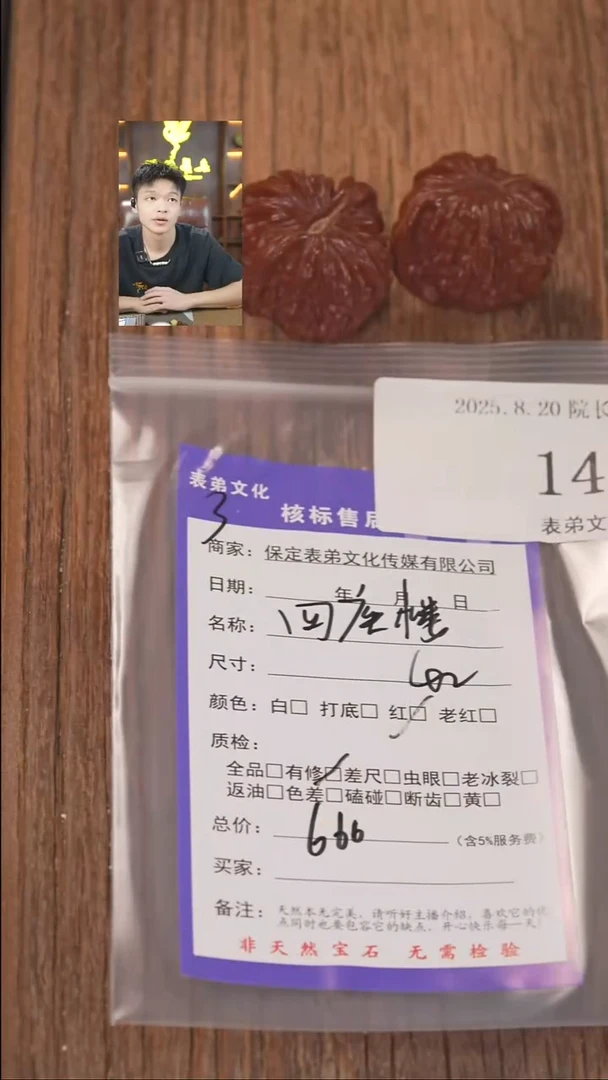 2025.8.20 院长
14
表弟文
表弟文化
3
核标售后
商家：保定表弟文化传媒有限公司
日期： 年 月 日
名称：四座楼
尺寸：
颜色：白□ 打底□ 红□ 老红□
质检：
全品□有修□差尺□虫眼□老冰裂□
返油□色差□磕碰□断齿□黄□
总价：666（含5%服务费）
买家：
备注：天然本无完美，请听好主播介绍，喜欢它的优
点同时也要包容它的缺点，开心快乐每一天！
非天然宝石 无需检验